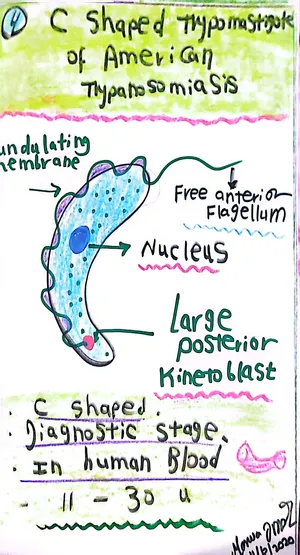 4
C Shaped Trypomastigote
of American
Trypanosomiasis
undulating
membrane
Free anterior
Flagellum
Nucleus
Large
posterior
Kinetoblast
. C shaped.
. Diagnostic stage.
. In human Blood
- 11 - 30 u